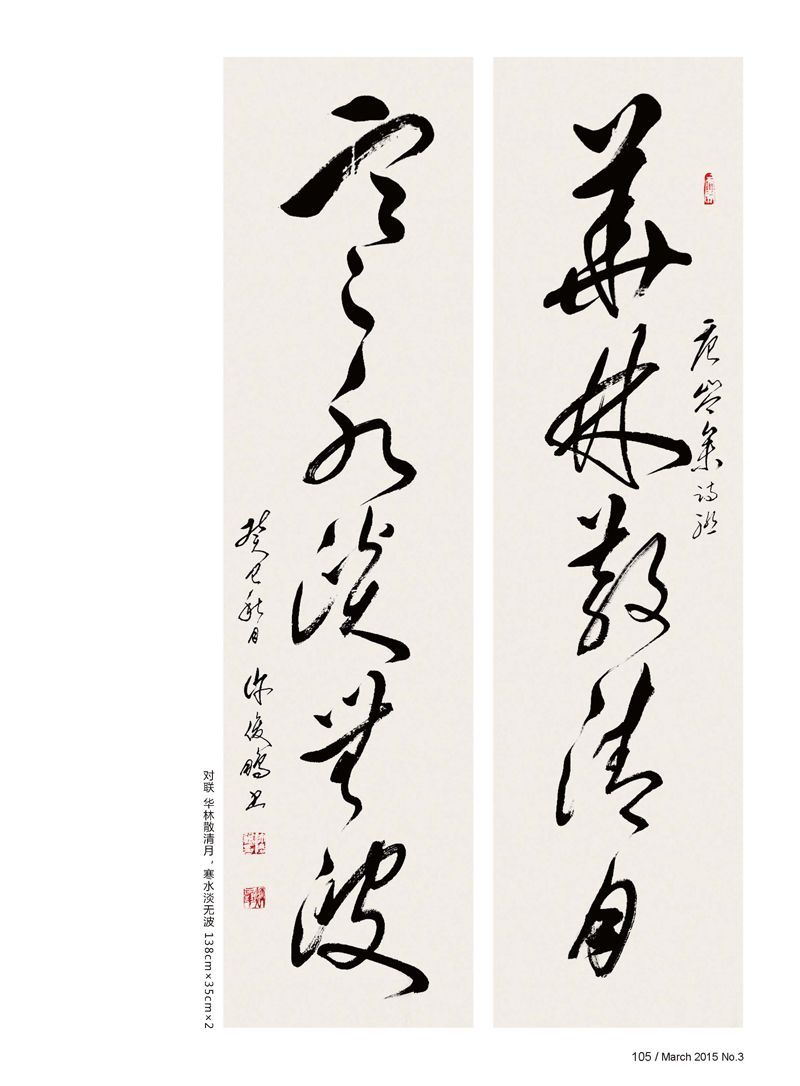 華林散清月
唐岑參詩聯
寒水淡無波
癸巳秋月 徐俊鵬書
对联 华林散清月，寒水淡无波 138cm×35cm×2
105 / March 2015 No.3